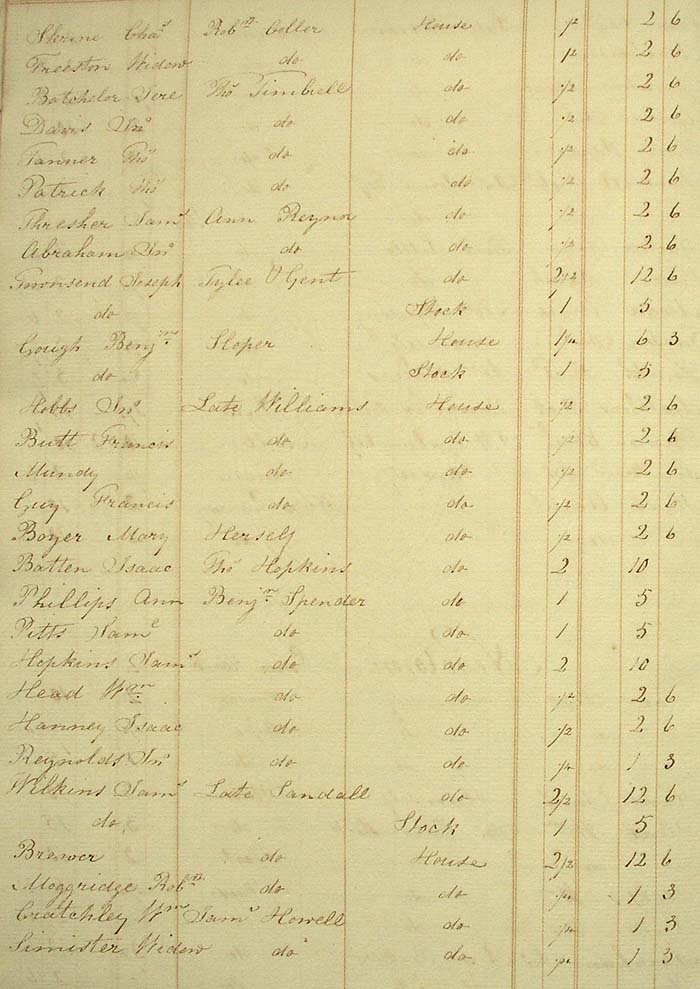 Skrine Chas Robt Coller House 1/2 2 6
Treeston Widow do do 1/2 2 6
Batchelor Jere Thos Timbrell do 1/2 2 6
Davis Jno do do 1/2 2 6
Tanner Thos do do 1/2 2 6
Patrick Thos do do 1/2 2 6
Thresher Saml Ann Reynol do 1/2 2 6
Abraham Jno do do 1/2 2 6
Townsend Joseph Tylee & Gent do 2 1/2 12 6
do Stock 1 5
Gough Benjn Sloper House 1 1/4 6 3
do Stock 1 5
Hobbs Jno Late Williams House 1/2 2 6
Butt Francis do do 1/2 2 6
Mundy do do 1/2 2 6
Guy Francis do do 1/2 2 6
Boyer Mary Herself do 1/2 2 6
Batten Isaac Thos Hopkins do 2 10
Phillips Ann Benjn Spender do 1 5
Pitts Saml do do 1 5
Hopkins Saml do do 2 10
Head Wm do do 1/2 2 6
Hanney Isaac do do 1/2 2 6
Reynolds Jno do do 1/4 1 3
Wilkins Saml Late Sandall do 2 1/2 12 6
do Stock 1 5
Brewer do House 2 1/2 12 6
Moggridge Robt do do 1/4 1 3
Cratchley Wm Saml Howell do 1/4 1 3
Simister Widow do do 1/4 1 3